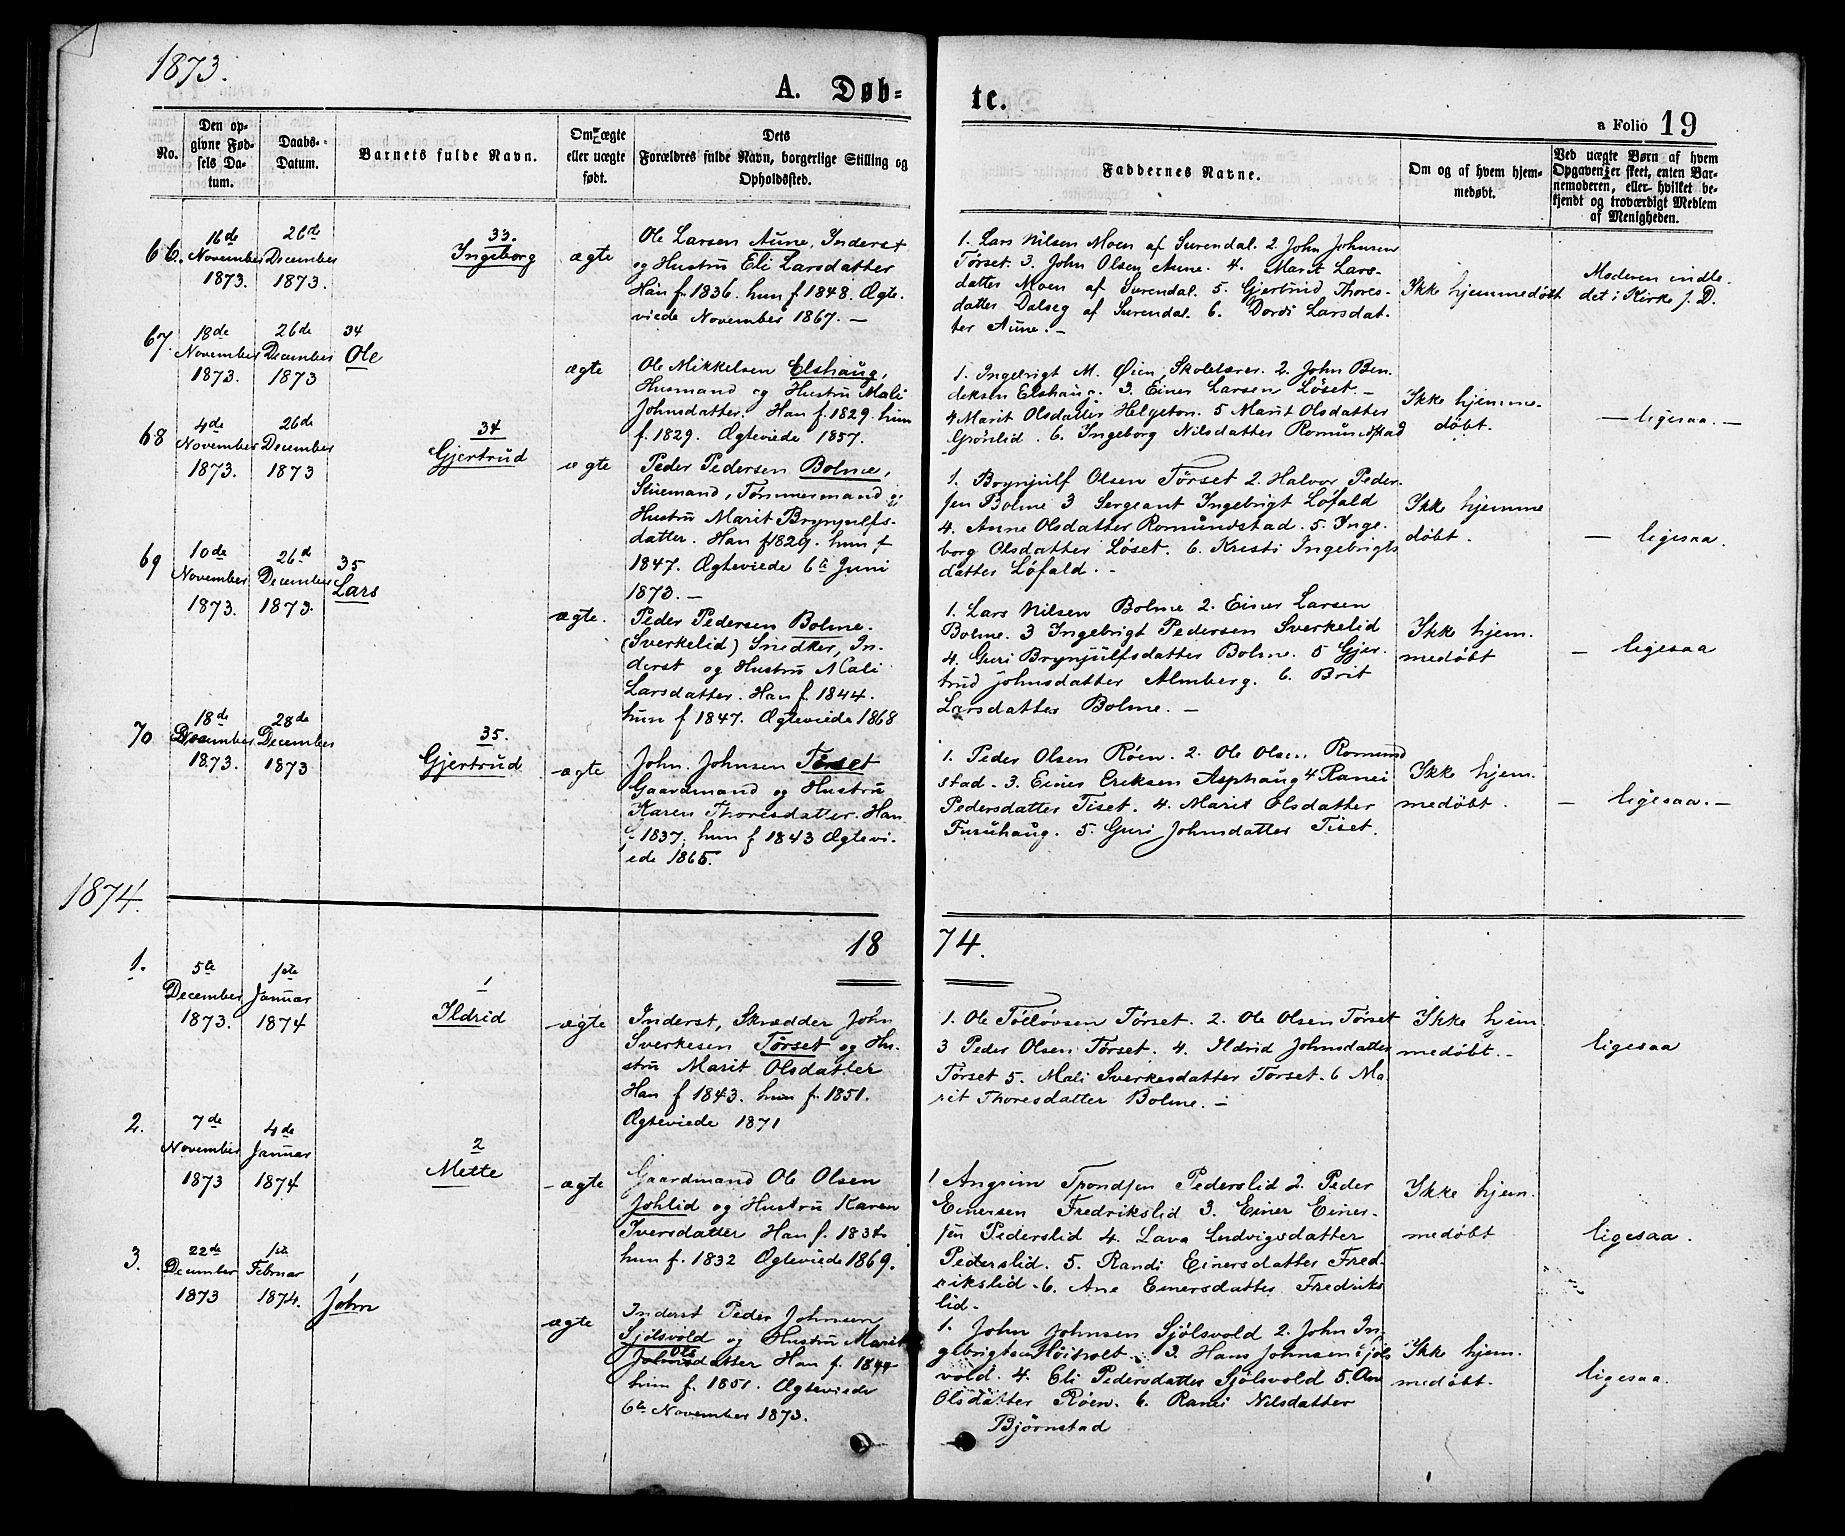 1873.
A. Døb-
te.
a Folio 19
No.
Den op-
givne Fød-
sels Da-
tum.
Daabs-
Datum.
Barnets fulde Navn.
Om ægte
eller uægte
født.
Dets
Forældres fulde Navn, borgerlige Stilling og
Opholdssted.
Faddernes Navne.
Om og af hvem hjem-
medøbt.
Ved uægte Børn af hvem
Opgaven er skeet, enten Bar-
nemoderen, eller hvilket be-
kjendt og troværdigt Medlem
af Menigheden.
66.
16de
November
1873.
26de
December
1873.
33.
Ingeborg
ægte
Ole Larsen Aune, Inderst
og Hustru Eli Larsdatter
Han f. 1836. hun f. 1848. Ægte-
viede November 1867. —
1. Lars Nilsen Moen af Surendal. 2. John Johnsen
Tørset. 3. John Olsen Aune. 4. Marit Lars-
datter Moen af Surendal. 5. Gjertrud Thores-
datter Dalseg af Surendal. 6. Dordi Larsdat-
ter Aune. —
Ikke hjemmedøbt
Moderen indle-
det i Kirke f. D.
67.
18de
November
1873.
26de
December
1873
34
Ole
ægte
Ole Mikkelsen Elshaug,
Husmand og Hustru Mali
Johnsdatter. Han f. 1829. hun
f. 1829. Ægteviede 1857.
1. Ingebrigt M. Øien, Skolelærer. 2. John Ben-
deksen Elshaug. 3. Einer Larsen Løset. —
4 Marit Olsdatter Helgeton. 5 Marit Olsdatter
Grønlid. 6. Ingeborg Nilsdatter Romundstad
Ikke hjemme-
døbt.
— ligesaa. —
68
4de
November
1873.
26de
December
1873
34
Gjertrud
ægte
Peder Pedersen Bolme,
Stuemand, Tømmermand og
Hustru Marit Brynjulfs-
datter. Han f 1829. hun f
1847. Ægteviede 6te Juni
1873. —
1. Brynjulf Olsen Tørset 2. Halvor Peder-
sen Bolme 3 Sergeant Ingebrigt Løfald
4. Anne Olsdatter Romundstad. 5. Inge-
borg Olsdatter Løset. 6. Kristi Ingebrigts
datter Løfald. —
Ikke hjemme
døbt.
— ligesaa.
69
10de
November
1873.
26d
December
1873.
35
Lars
ægte.
Peder Pedersen Bolme.
(Sverkelid) Snedker, In-
derst og Hustru Mali
Larsdatter. Han f. 1844.
hun f 1847. Ægteviede 1868
1. Lars Nilsen Bolme 2. Einer Larsen
Bolme. 3 Ingebrigt Pedersen Sverkelid
4. Guri Brynjulfsdatter Bolme. 5 Gjer-
trud Johnsdatter Almberg. 6. Brit
Larsdatter Bolme. —
Ikke hjem-
medøbt
— ligesaa
70
18de
December
1873.
28de
December
1873
35.
Gjertrud
ægte
John Johnsen Tørset
Gaardmand og Hustru
Karen Thoresdatter. Han
f. 1837; hun f 1843 Ægtevi-
ede 1865.
1. Peder Olsen Røen. 2. Ole Olsen Romund
stad. 3. Einer Eriksen Asphaug 4 Ranei
Pedersdatter Tiset. 4. Marit Olsdatter
Furuhaug. 5. Guri Johnsdatter Tiset.
Ikke hjem-
medøbt.
— ligesaa. —
1874.
18 74.
1.
5te
December
1873.
1ste
Januar
1874
1
Ildrid
ægte
Inderst, Skrædder John
Sverkesen Tørset og Hu-
stru Marit Olsdatter
Han f 1843. hun f. 1851.
Ægteviede 1871
1. Ole Tølløvsen Tørset. 2. Ole Olsen Tørset
3 Peder Olsen Tørset. 4. Ildrid Johnsdatter
Tørset 5. Mali Sverkesdatter Tørset. 6 Ma-
rit Thoresdatter Bolme. —
Ikke hjem-
medøbt. —
ligesaa
2.
7de
November
1873
4de
Januar
1874
2
Mette
ægte
Gaardmand Ole Olsen
Johlid og Hustru Karen
Iversdatter Han f. 1834
hun f. 1832 Ægteviede 1869.
1 Angrim Trondsen Pederslid 2. Peder
Einersen Fredrikslid 3. Einer Einer-
sen Pederslid 4. Lava Ludvigsdatter
Pederslid. 5. Randi Einersdatter Fred-
rikslid. 6. Ane Einersdatter Fredriks
lid.
Ikke hjem-
medøbt
ligesaa.
3.
22de
December
1873
1ste
Februar
1874.
1
John
ægte
Inderst Peder Johnsen
Sjølsvold og Hustru Marit
Ols
Johnsdatter Han f. 1844
hun f. 1851. Ægteviede
6te November 1873.
1. John Johnsen Sjølsvold 2. John In-
gebrigtsen Høiholt. 3. Hans Johnsen Sjøls
vold. 4. Eli Pedersdatter Sjølsvold 5.
Olsdatter Røen. 6. Ranei Nilsdatter
Bjørnstad
Ikke hjem-
medøbt.
ligesaa.